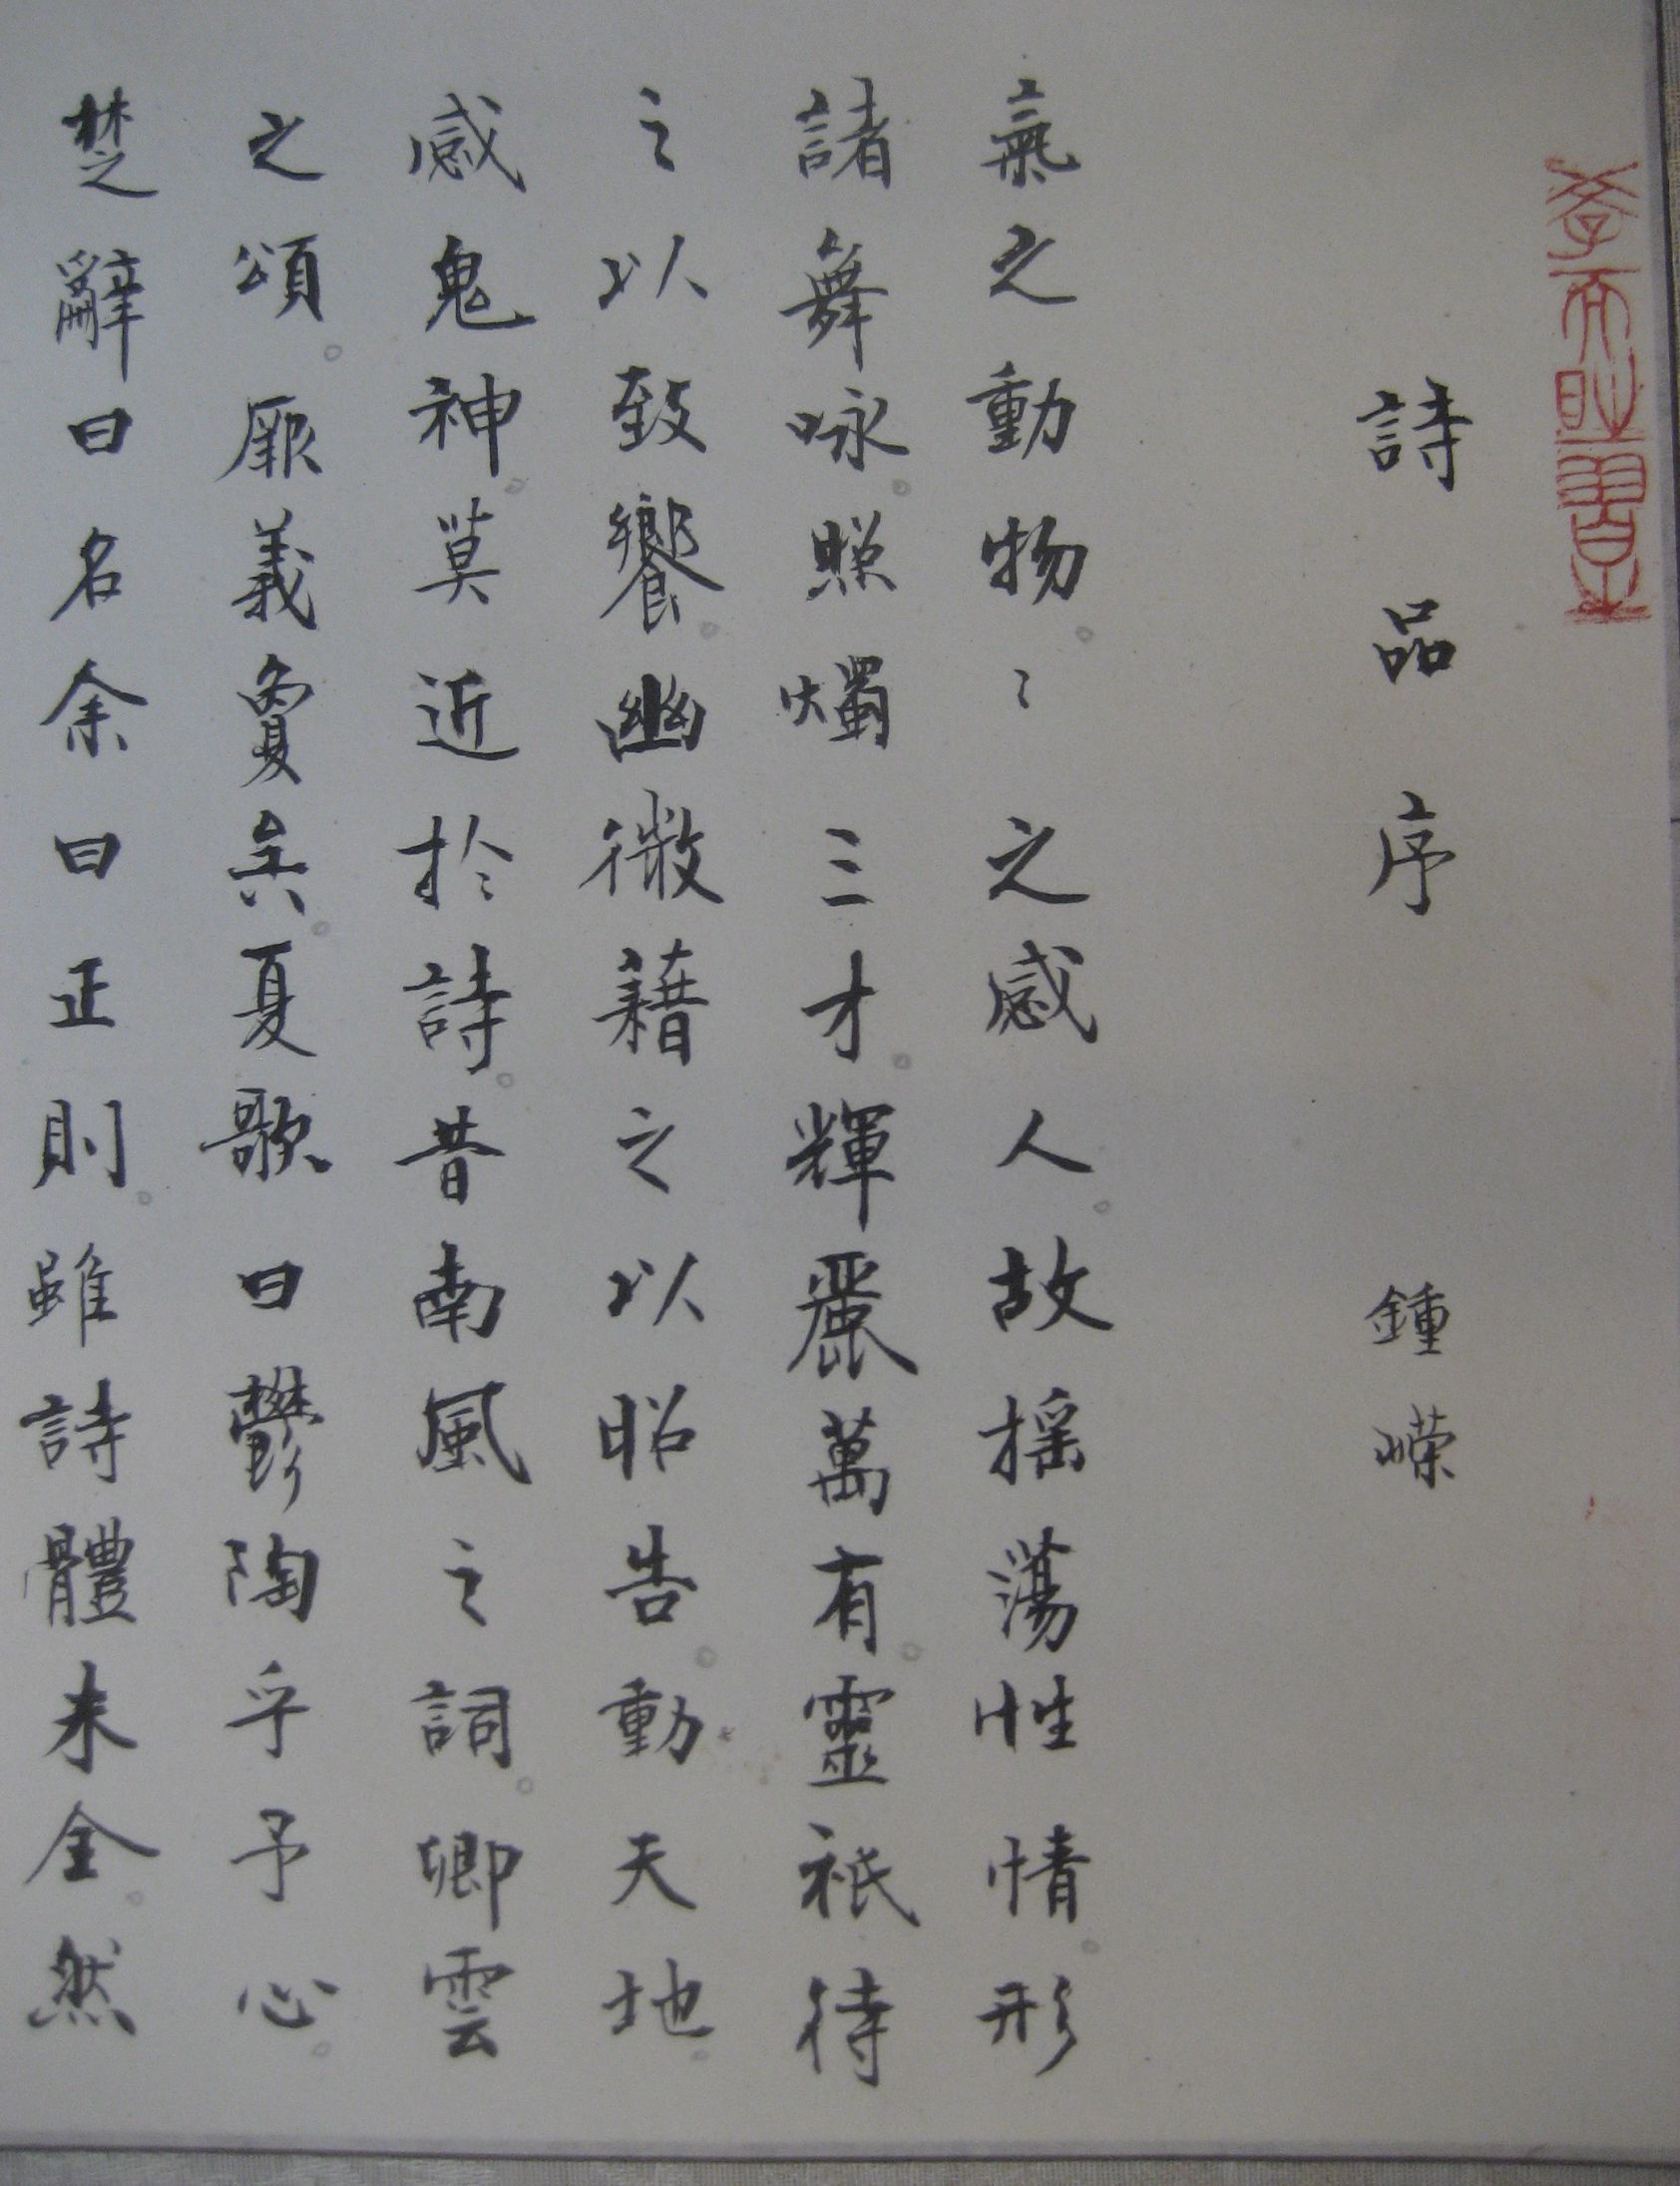 詩品序 鍾嶸
氣之動物。〻之感人。故搖蕩性情。形
諸舞咏。照燭三才。輝麗萬有。靈祇待
之以致饗。幽微藉之以昭告。動天地。
感鬼神。莫近於詩。昔南風之詞。卿雲
之頌。厥義夐矣。夏歌曰鬱陶乎予心。
楚辭曰名余曰正則。雖詩體未全。然